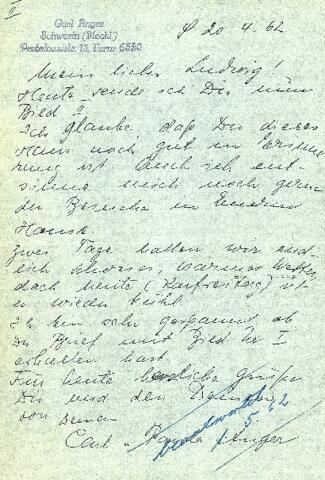 II
Carl Anger
Schwerin (Meckl)
Pestalozzistr. 13, Fernr. 6530
20. 4. 62
Mein lieber Ludwig!
Heute sende ich Dir mein
Bild II
Ich glaube, daß Du dieses
Haus noch gut in Erinne
rung ist auch ich ent
sinne mich noch gern
der Besuche in Eurem
Hause
Zwei Tage hatten wir end-
lich schönes, warmes Wetter,
doch heute (Karfreitag) ist
es wieder kühl
Ich bin sehr gespannt ob
Du Brief mit Bild Nr I
erhalten hast.
Für heute herzliche Grüße
Dir und den Deinen
von Deinem
Carl u Anger
beantwortet
5. 62